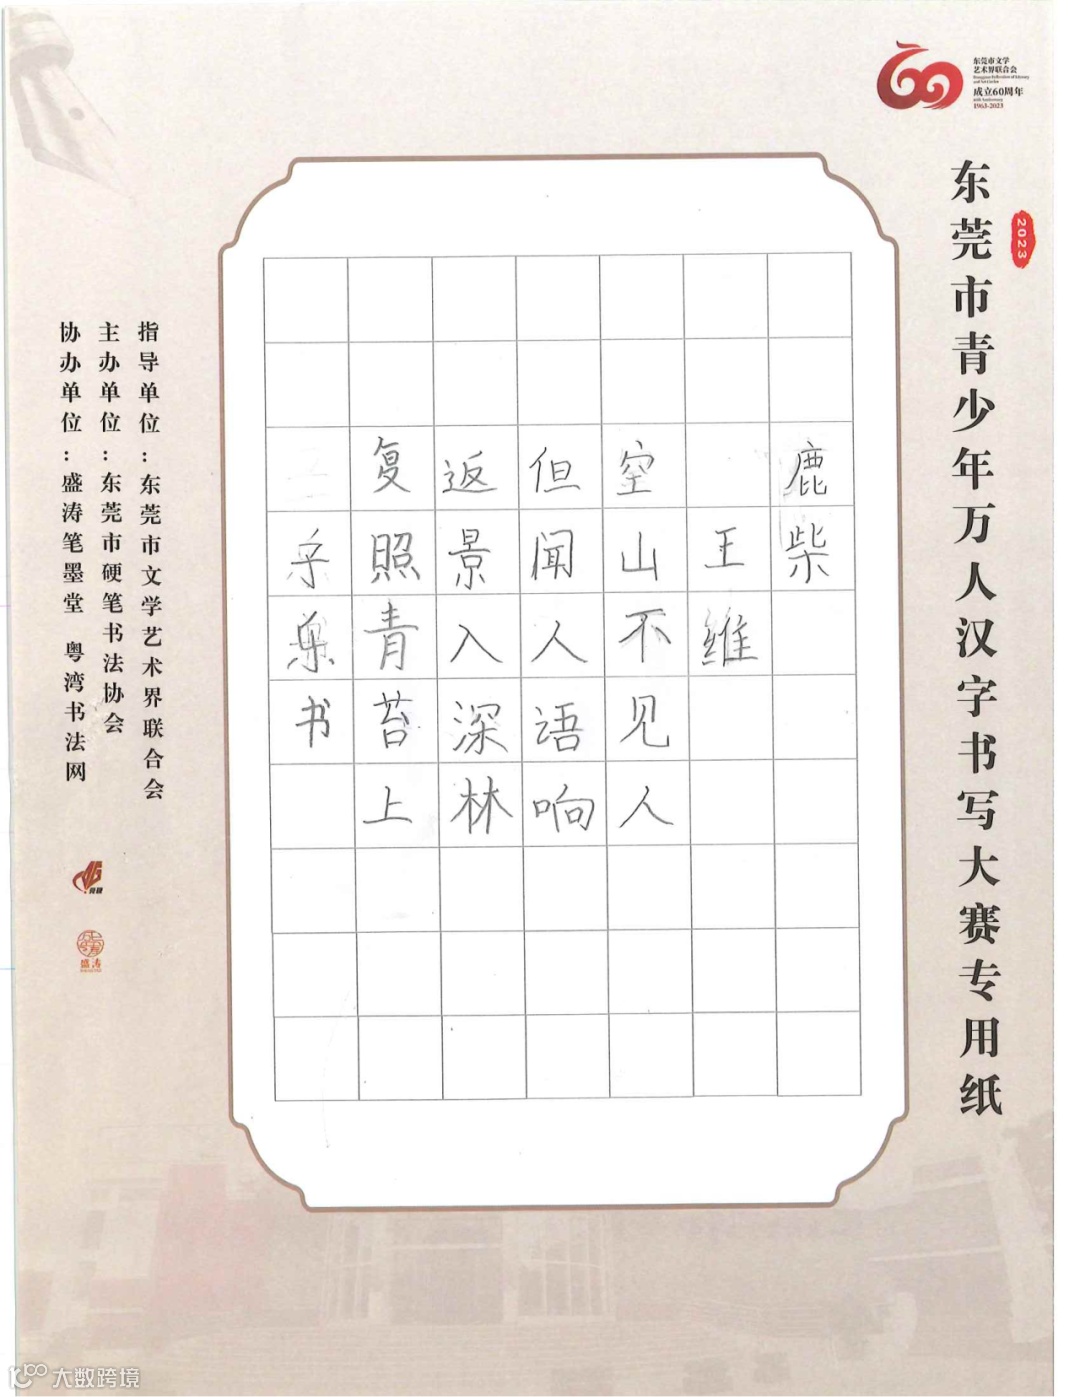 东莞市文学
艺术界联合会
成立60周年
1963-2023
2023
东莞市青少年万人汉字书写大赛专用纸
鹿柴
王维
空山不见人
但闻人语响
返景入深林
复照青苔上
书
指导单位：东莞市文学艺术界联合会
主办单位：东莞市硬笔书法协会
协办单位：盛涛笔墨堂 粤湾书法网
盛涛
大数跨境